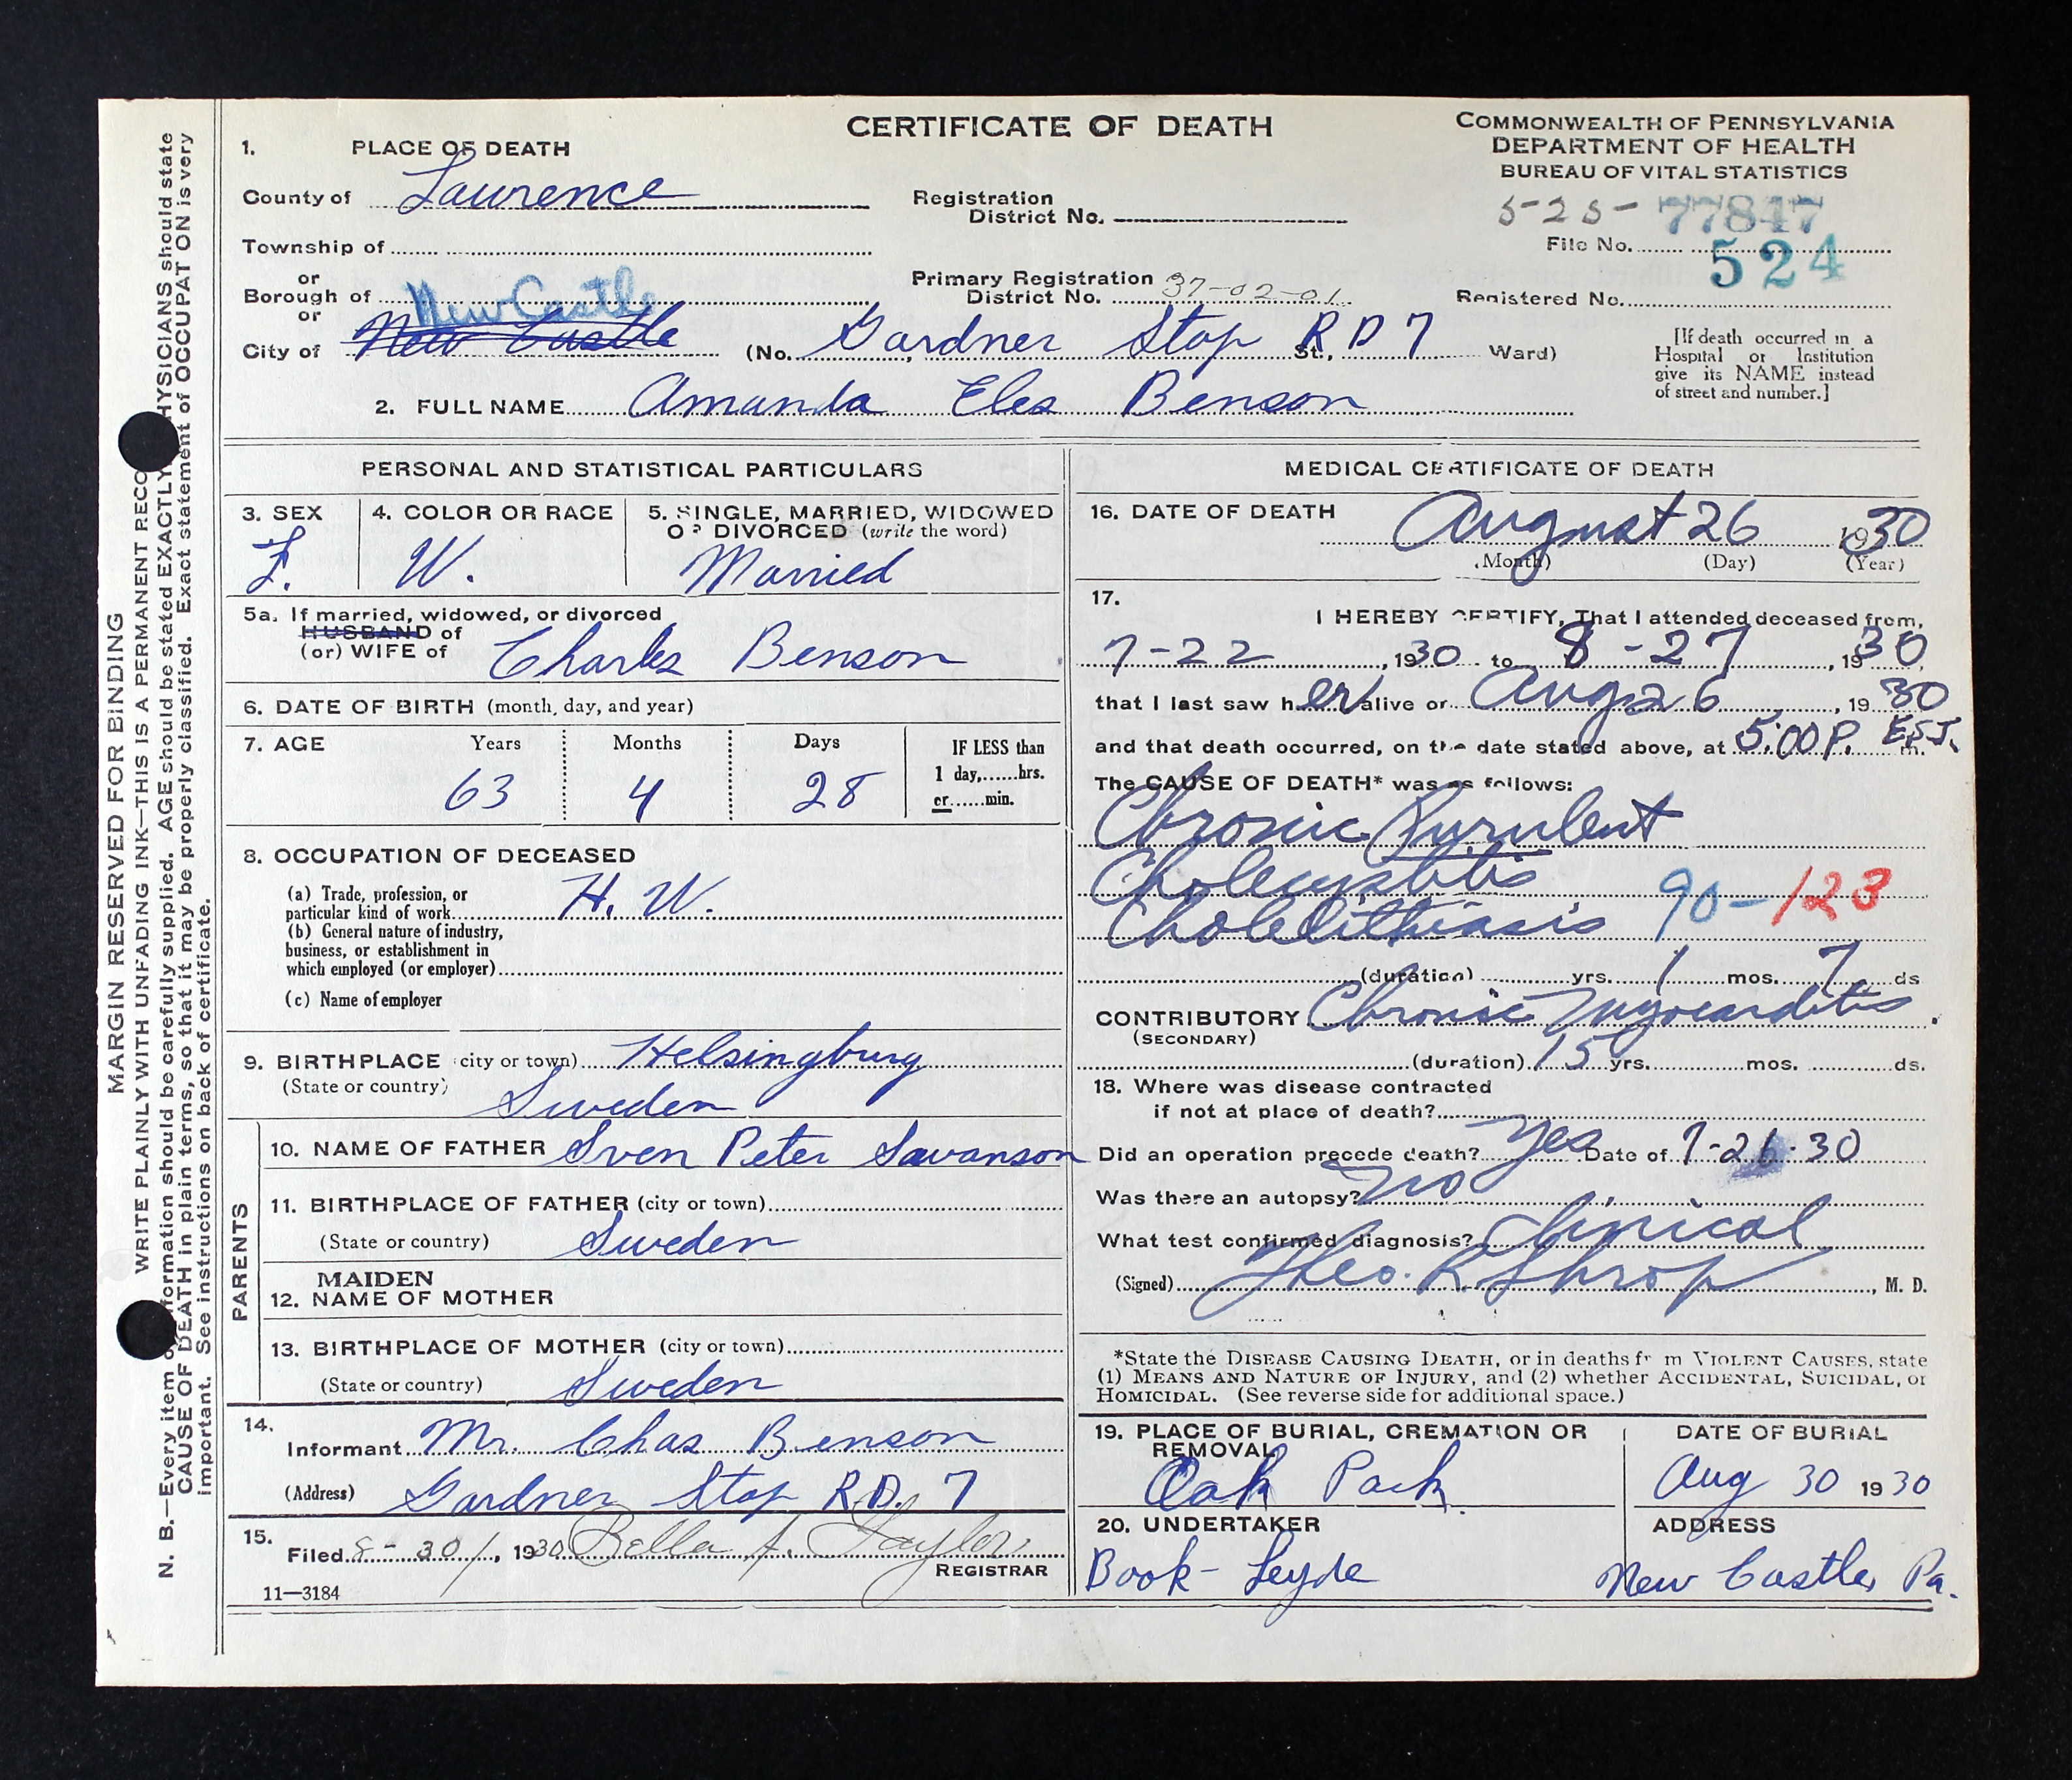 CERTIFICATE OF DEATH
COMMONWEALTH OF PENNSYLVANIA
DEPARTMENT OF HEALTH
BUREAU OF VITAL STATISTICS
1. PLACE OF DEATH
County of Lawrence
Registration
District No.
5-25- 77847
File No.
524
Township of
or
Borough of New Castle
or
City of New Castle
Primary Registration
District No. 37-02-01
Registered No.
(No. Gardner Stop RD 7 St., Ward)
[If death occurred in a
Hospital or Institution
give its NAME instead
of street and number.]
2. FULL NAME Amanda Eles Benson
PERSONAL AND STATISTICAL PARTICULARS
3. SEX
F.
4. COLOR OR RACE
W.
5. SINGLE, MARRIED, WIDOWED
OR DIVORCED (write the word)
Married
5a. If married, widowed, or divorced
HUSBAND of
(or) WIFE of Charles Benson
6. DATE OF BIRTH (month, day, and year)
7. AGE Years Months Days
63 4 28
IF LESS than
1 day,......hrs.
or......min.
8. OCCUPATION OF DECEASED
(a) Trade, profession, or
particular kind of work H. W.
(b) General nature of industry,
business, or establishment in
which employed (or employer)
(c) Name of employer
9. BIRTHPLACE (city or town) Helsingburg
(State or country) Sweden
PARENTS
10. NAME OF FATHER Sven Peter Swanson
11. BIRTHPLACE OF FATHER (city or town)
(State or country) Sweden
12. MAIDEN
NAME OF MOTHER
13. BIRTHPLACE OF MOTHER (city or town)
(State or country) Sweden
14.
Informant Mr. Chas Benson
(Address) Gardner Stop R.D. 7
15.
Filed 8-30/, 1930 Bella A. Taylor
REGISTRAR
11—3184
MEDICAL CERTIFICATE OF DEATH
16. DATE OF DEATH
August 26 1930
(Month) (Day) (Year)
17.
I HEREBY CERTIFY, That I attended deceased from,
7-22, 1930 to 8-27, 1930
that I last saw her alive on Aug 26, 1930
and that death occurred, on the date stated above, at 5:00 P. m. E.S.T.
The CAUSE OF DEATH* was as follows:
Chronic Purulent
Cholecystitis
Cholelithiasis 90-123
(duration) yrs. 1 mos. 7 ds
CONTRIBUTORY Chronic Myocarditis
(SECONDARY)
(duration) 15 yrs. mos. ds.
18. Where was disease contracted
if not at place of death?
Did an operation precede death? Yes Date of 7-26-30
Was there an autopsy? No
What test confirmed diagnosis? Clinical
(Signed) Theo. R. Shrop, M. D.
*State the DISEASE CAUSING DEATH, or in deaths from VIOLENT CAUSES, state
(1) MEANS AND NATURE OF INJURY, and (2) whether ACCIDENTAL, SUICIDAL, or
HOMICIDAL. (See reverse side for additional space.)
19. PLACE OF BURIAL, CREMATION OR
REMOVAL
Oak Park
DATE OF BURIAL
Aug 30 1930
20. UNDERTAKER
Book-Leyde
ADDRESS
New Castle, Pa.
MARGIN RESERVED FOR BINDING
WRITE PLAINLY WITH UNFADING INK—THIS IS A PERMANENT RECO
N. B.—Every item of information should be carefully supplied. AGE should be stated EXACTLY. PHYSICIANS should state
CAUSE OF DEATH in plain terms, so that it may be properly classified. Exact statement of OCCUPATION is very
important. See instructions on back of certificate.